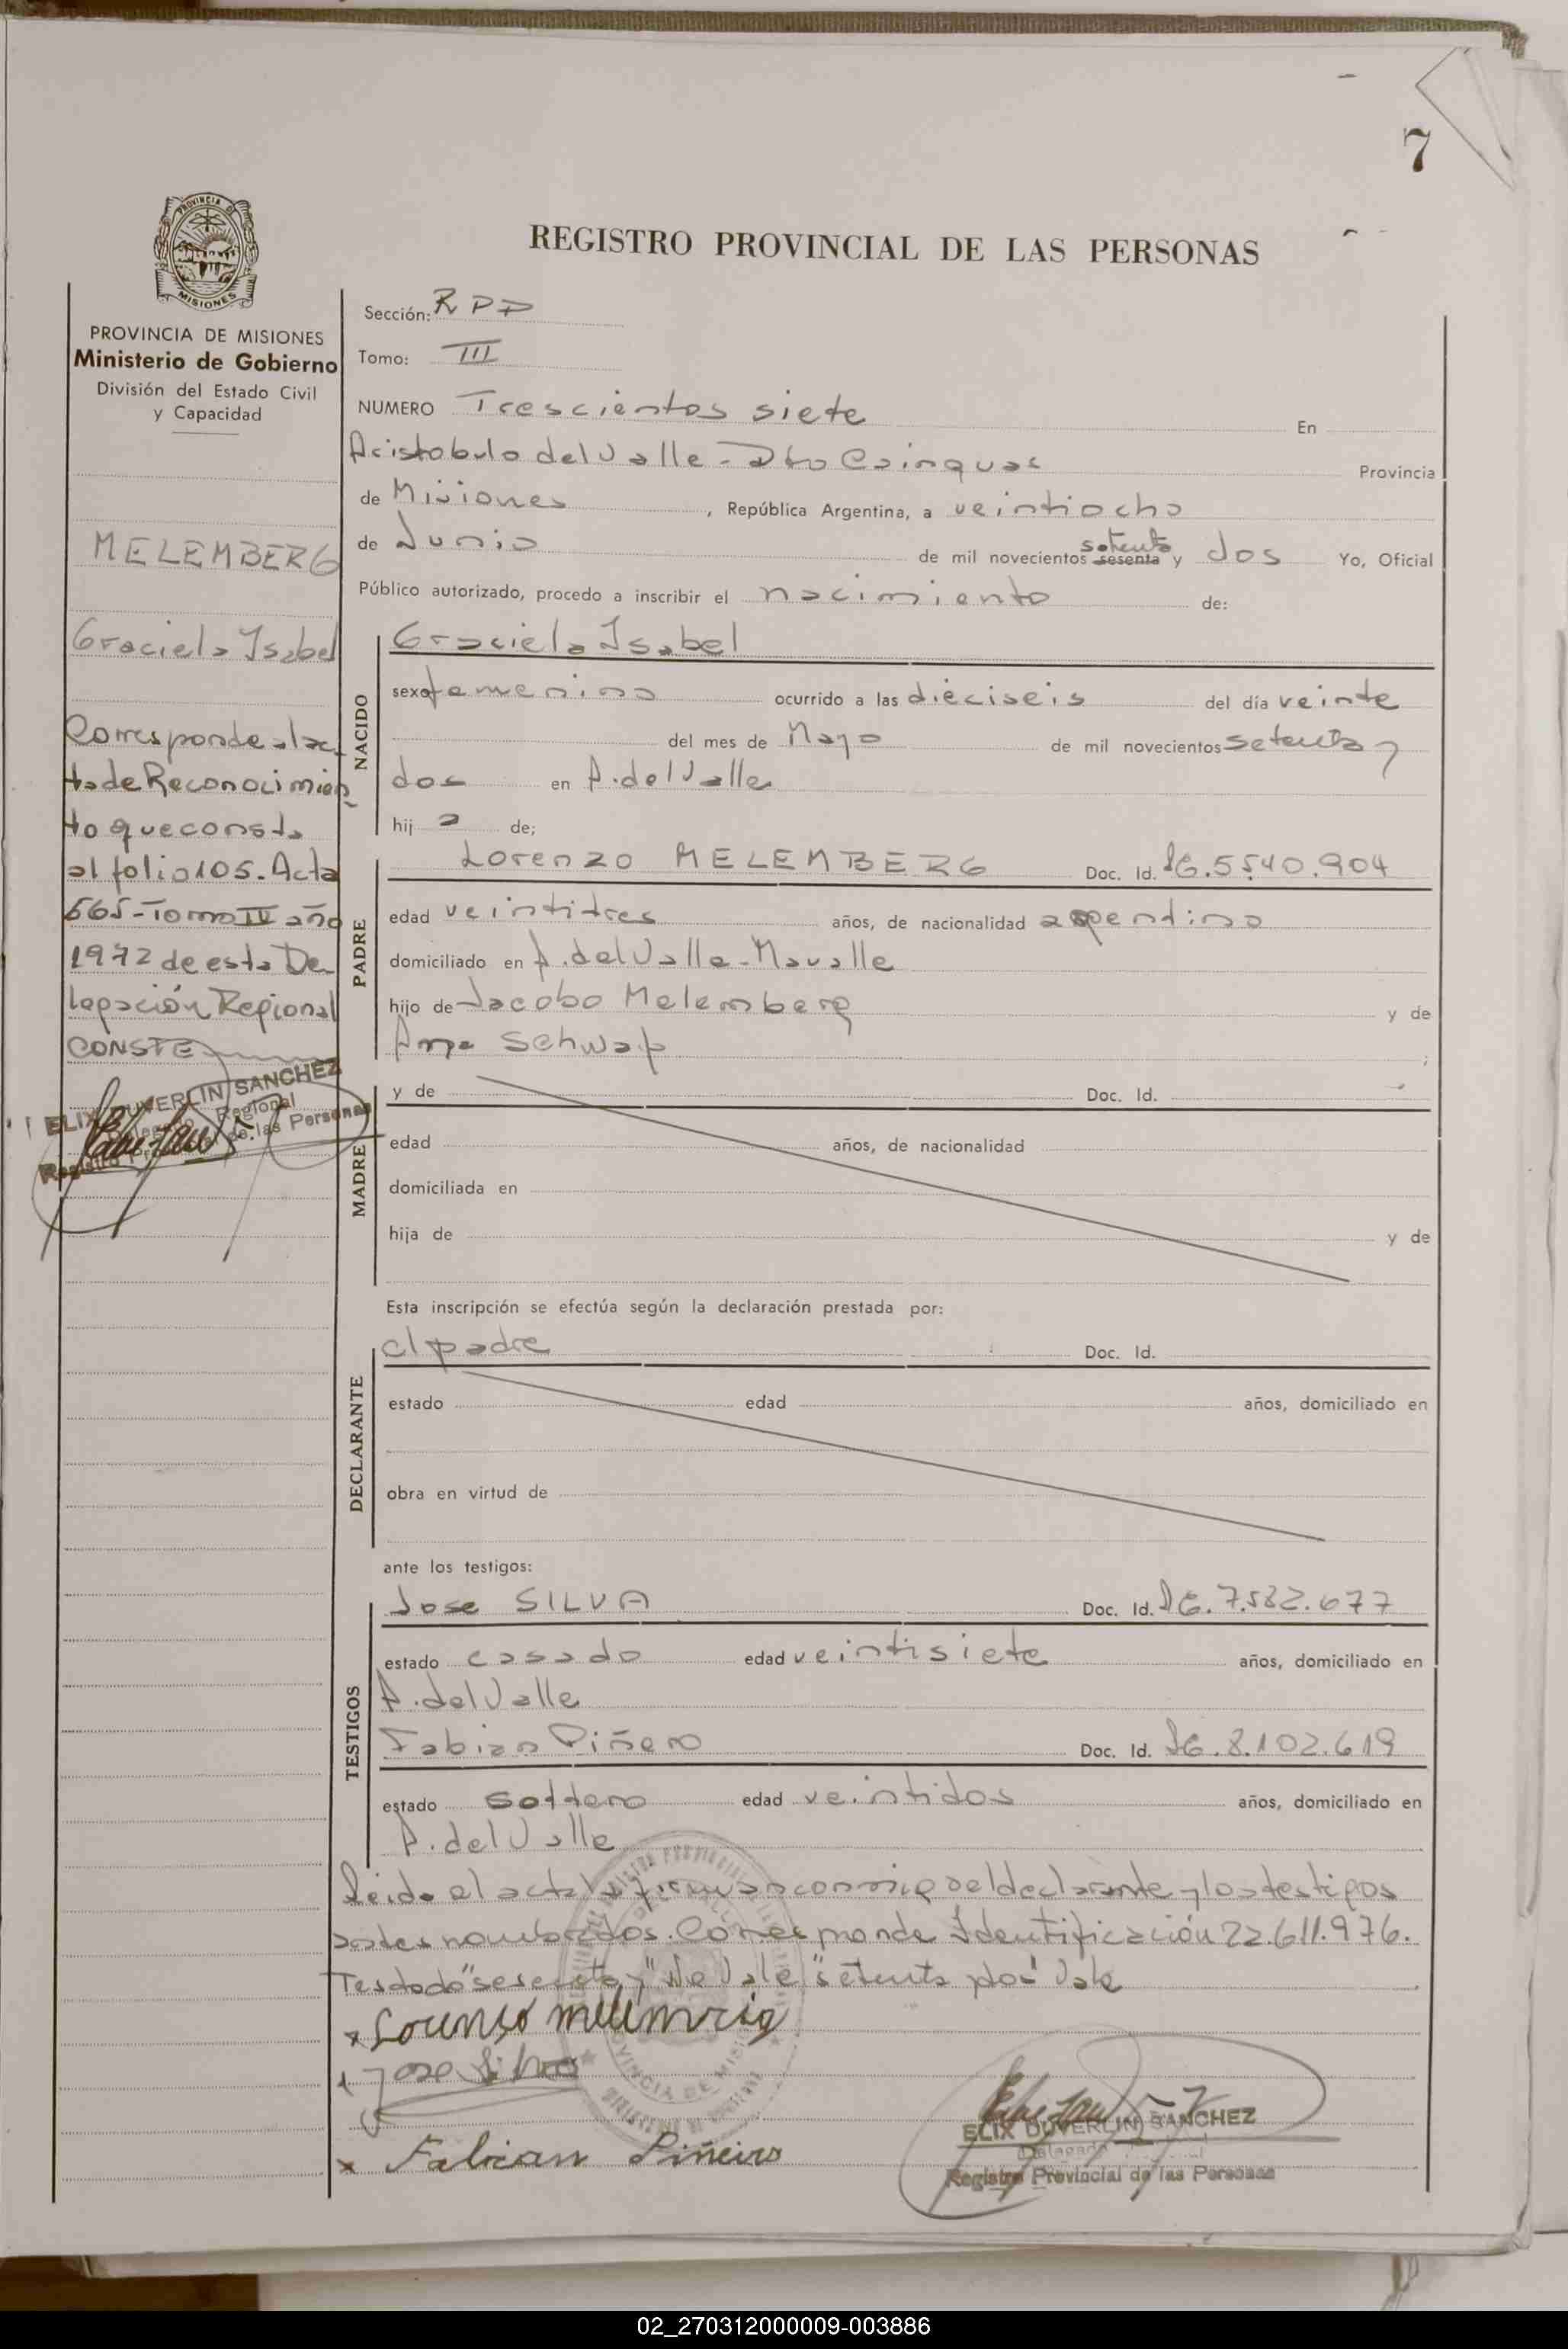 7
PROVINCIA DE MISIONES
REGISTRO PROVINCIAL DE LAS PERSONAS
PROVINCIA DE MISIONES
Ministerio de Gobierno
División del Estado Civil
y Capacidad
MELEMBERG
Graciela Isabel
Corresponde al ac-
ta de Reconocimien
to que consta
al folio 105. Acta
565 - Tomo IV año
1972 de esta De-
legación Regional
CONSTE
ELIX DUVERLIN SANCHEZ
Delegado Regional
Registro Provincial de las Personas
Sección: RPP
Tomo: III
NUMERO Trescientos siete En
Aristobulo del Valle - Dto Cainguas Provincia
de Misiones , República Argentina, a veintiocho
de Junio de mil novecientos sesenta setenta y dos Yo, Oficial
Público autorizado, procedo a inscribir el nacimiento de:
NACIDO
Graciela Isabel
sexo femenino ocurrido a las dieciseis del día veinte
del mes de Mayo de mil novecientos setenta y
dos en A. del Valle
hij a de;
PADRE
Lorenzo MELEMBERG Doc. Id. I6.5.540.904
edad veintitres años, de nacionalidad argentino
domiciliado en A. del Valle -
hijo de Jacobo Melemberg y de
Ana Schwap ;
MADRE
y de Doc. Id.
edad años, de nacionalidad
domiciliada en
hija de y de
Esta inscripción se efectúa según la declaración prestada por:
DECLARANTE
el padre Doc. Id.
estado edad años, domiciliado en
obra en virtud de
ante los testigos:
TESTIGOS
Jose SILVA Doc. Id. I6.7.582.677
estado casado edad veintisiete años, domiciliado en
A. del Valle
Fabian Piñero Doc. Id. I6.8.102.619
estado soltero edad veintidos años, domiciliado en
A. del Valle
Leida el acta la firman conmigo el declarante y los testigos
antes nombrados. Corresponde Identificación 22.611.976.
Testado "sesenta y" No Vale "setenta y dos" Vale
x Lorenso
x Jose Silva
x Fabian Piñeiro
ELIX DUVERLIN SANCHEZ
Delegado
Registro Provincial de las Personas
02_270312000009-003886